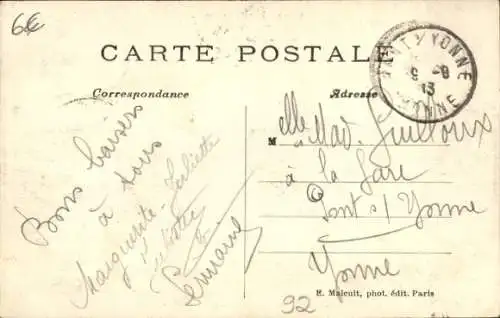 6€
CARTE POSTALE
Correspondance
Adresse
PONT S/ YONNE
9 -8
13
YONNE
Bons baisers
à tous
Marguerite - Juliette
Germaine
Melle Mad. Guilloux
à la Gare
Pont s/ Yonne
Yonne
92
E. Malcuit, phot. édit. Paris